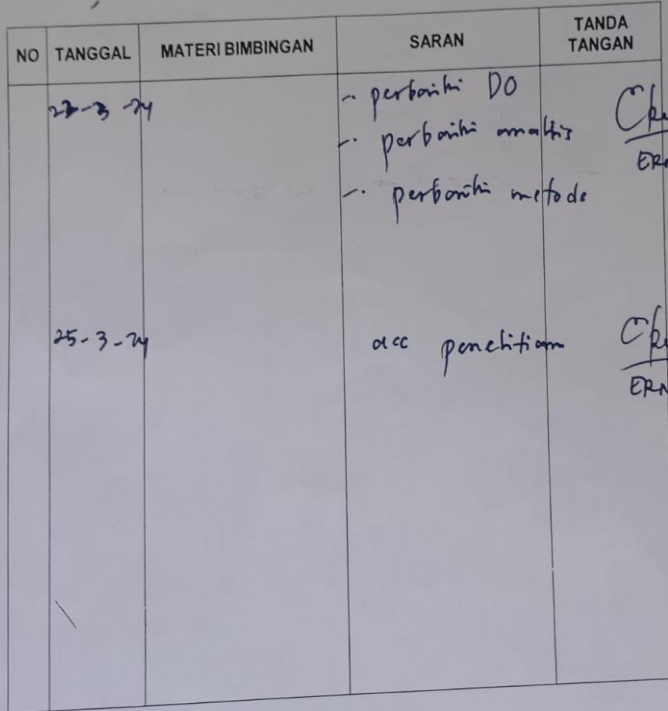 NO TANGGAL MATERI BIMBINGAN SARAN TANDA TANGAN
- perbaiki DO
- perbaiki analtis
- perbaiki metode
25-3-24 acc penelitian